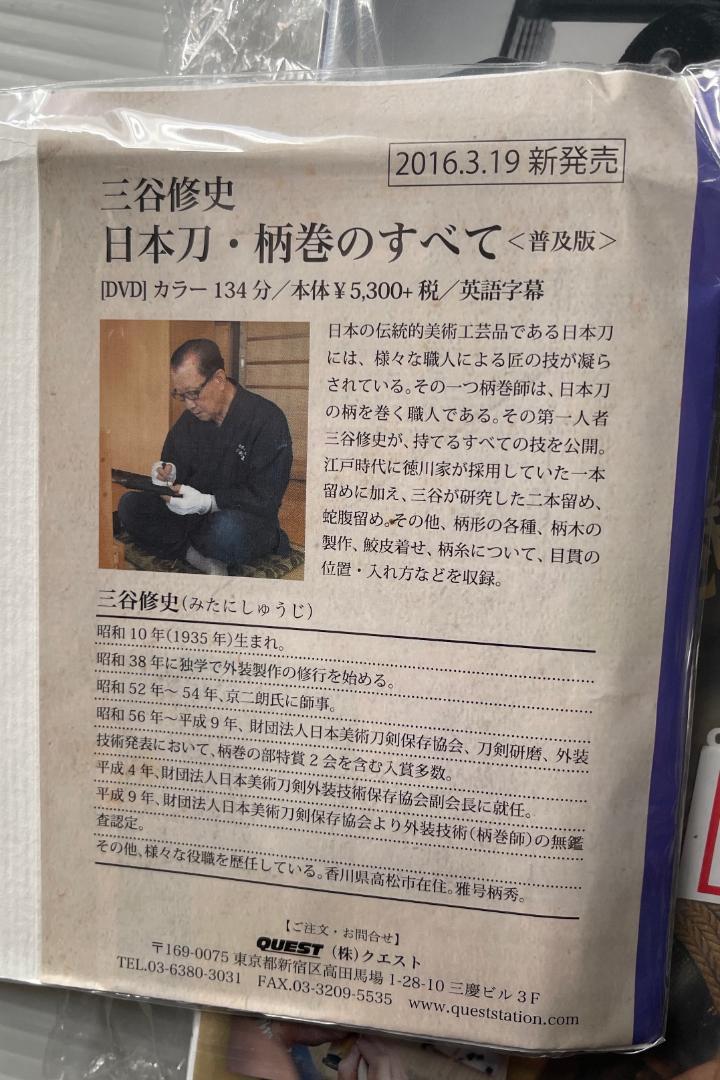 2016.3.19 新発売
三谷修史
日本刀・柄巻のすべて＜普及版＞
[DVD] カラー 134 分／本体￥5,300+ 税／英語字幕
日本の伝統的美術工芸品である日本刀
には、様々な職人による匠の技が凝ら
されている。その一つ柄巻師は、日本刀
の柄を巻く職人である。その第一人者
三谷修史が、持てるすべての技を公開。
江戸時代に徳川家が採用していた一本
留めに加え、三谷が研究した二本留め、
蛇腹留め。その他、柄形の各種、柄木の
製作、鮫皮着せ、柄糸について、目貫の
位置・入れ方などを収録。
三谷修史（みたにしゅうじ）
昭和 10 年（1935 年）生まれ。
昭和 38 年に独学で外装製作の修行を始める。
昭和 52 年〜 54 年、京二朗氏に師事。
昭和 56 年〜平成 9 年、財団法人日本美術刀剣保存協会、刀剣研磨、外装
技術発表において、柄巻の部特賞 2 会を含む入賞多数。
平成 4 年、財団法人日本美術刀剣外装技術保存協会副会長に就任。
平成 9 年、財団法人日本美術刀剣保存協会より外装技術（柄巻師）の無鑑
査認定。
その他、様々な役職を歴任している。香川県高松市在住。雅号柄秀。
【ご注文・お問合せ】
QUEST （株）クエスト
〒169-0075 東京都新宿区高田馬場 1-28-10 三慶ビル 3 F
TEL.03-6380-3031 FAX.03-3209-5535 www.queststation.com